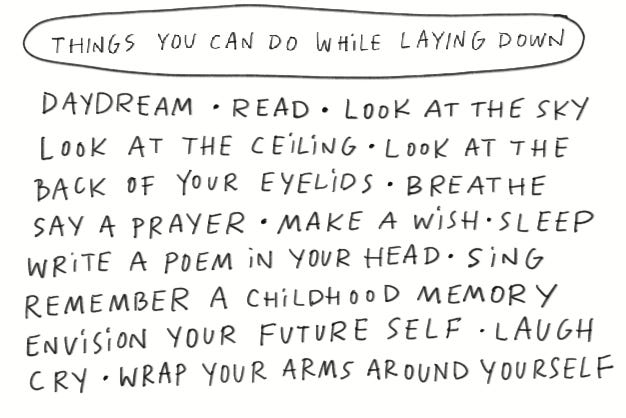 THINGS YOU CAN DO WHILE LAYING DOWN
DAYDREAM • READ • LOOK AT THE SKY
LOOK AT THE CEILING • LOOK AT THE
BACK OF YOUR EYELIDS • BREATHE
SAY A PRAYER • MAKE A WISH • SLEEP
WRITE A POEM IN YOUR HEAD • SING
REMEMBER A CHILDHOOD MEMORY
ENVISION YOUR FUTURE SELF • LAUGH
CRY • WRAP YOUR ARMS AROUND YOURSELF